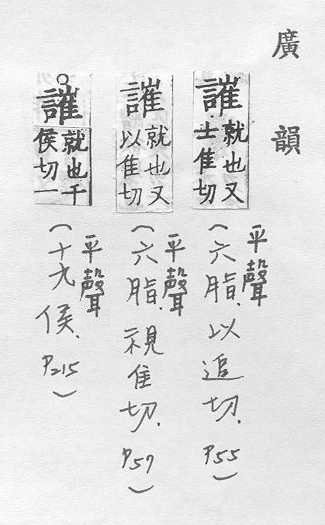 廣韻
誰 就也又士隹切
平聲
(六脂.以追切.P55)
誰 就也又以隹切
平聲
(六脂.視隹切.P57)
○誰 就也千侯切一
平聲
(十九侯.P215)